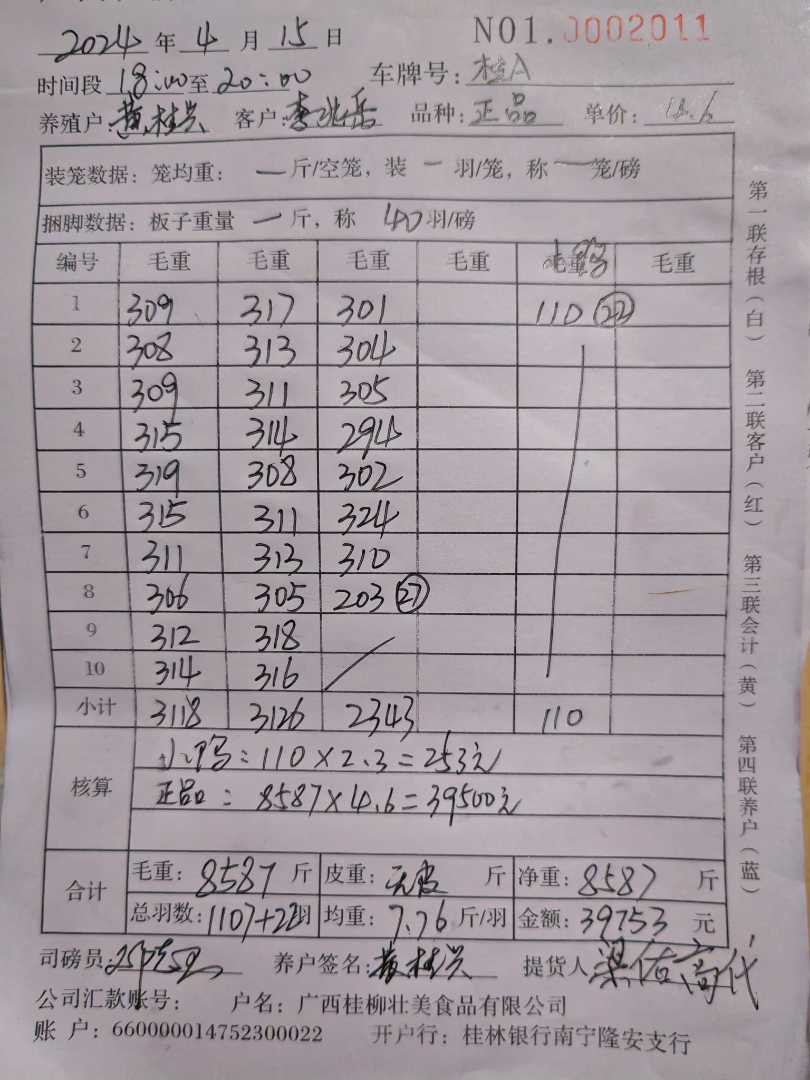 2024 年 4 月 15 日 NO1.0002011
时间段 18:00 至 20:00 车牌号: 桂A
养殖户: 黄桂兴 客户: 李北岳 品种: 正品 单价: 4.6
装笼数据: 笼均重: 一 斤/空笼, 装 一 羽/笼, 称 一 笼/磅
捆脚数据: 板子重量 一 斤, 称 40 羽/磅
编号 毛重 毛重 毛重 毛重 小鸭 毛重
1 309 317 301 110 (22)
2 308 313 304
3 309 311 305
4 315 314 294
5 319 308 302
6 315 311 324
7 311 313 310
8 306 305 203 (27)
9 312 318
10 314 316
小计 3118 3126 2343 110
核算
小鸭: 110×2.3=253元
正品: 8587×4.6=39500元
合计
毛重: 8587 斤 皮重: 无皮 斤 净重: 8587 斤
总羽数: 1107+22羽 均重: 7.76 斤/羽 金额: 39753 元
司磅员: 养户签名: 黄桂兴 提货人
公司汇款账号: 户名: 广西桂柳壮美食品有限公司
账 户: 660000014752300022 开户行: 桂林银行南宁隆安支行
第一联存根(白) 第二联客户(红) 第三联会计(黄) 第四联养户(蓝)